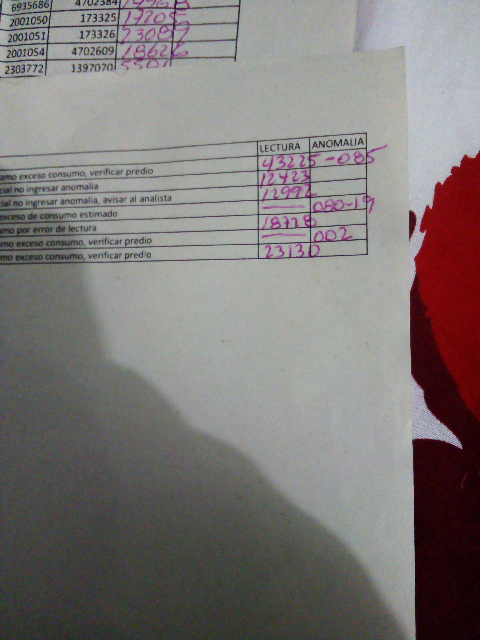 6935686 4702384
2001050 173325 17205
2001051 173326 23087
2001054 4702609 18626
2303772 1397070
LECTURA ANOMALIA
amo exceso consumo, verificar predio 43225 -085
cial no ingresar anomalia 12423
cial no ingresar anomalia, avisar al analista 12992
exceso de consumo estimado — 080-19
mo por error de lectura 18728
mo exceso consumo, verificar predio — 002
mo exceso consumo, verificar predio 23130